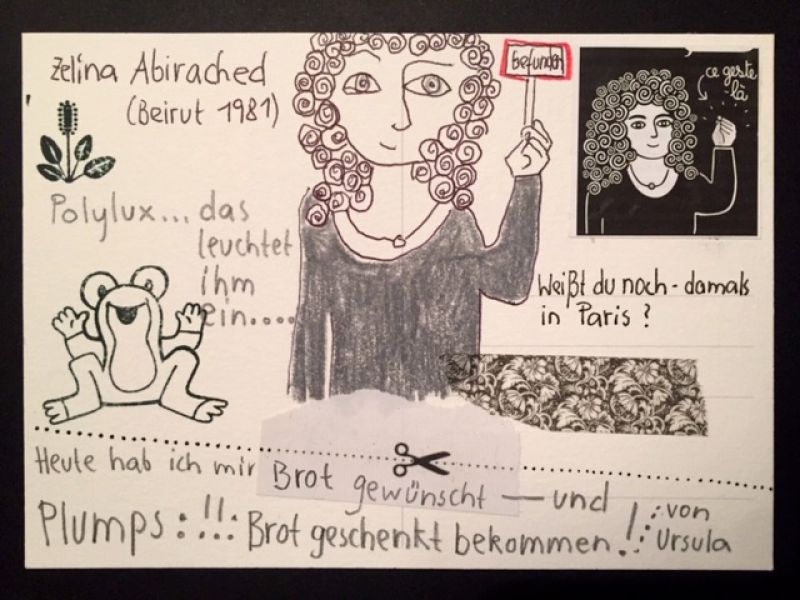 Zelina Abirached
(Beirut 1981)
gefunden
ce geste
là
Polylux... das
leuchtet
ihm
ein....
Weißt du noch - damals
in Paris ?
Heute hab ich mir Brot gewünscht — und
Plumps : !!: Brot geschenkt bekommen ! : von
Ursula